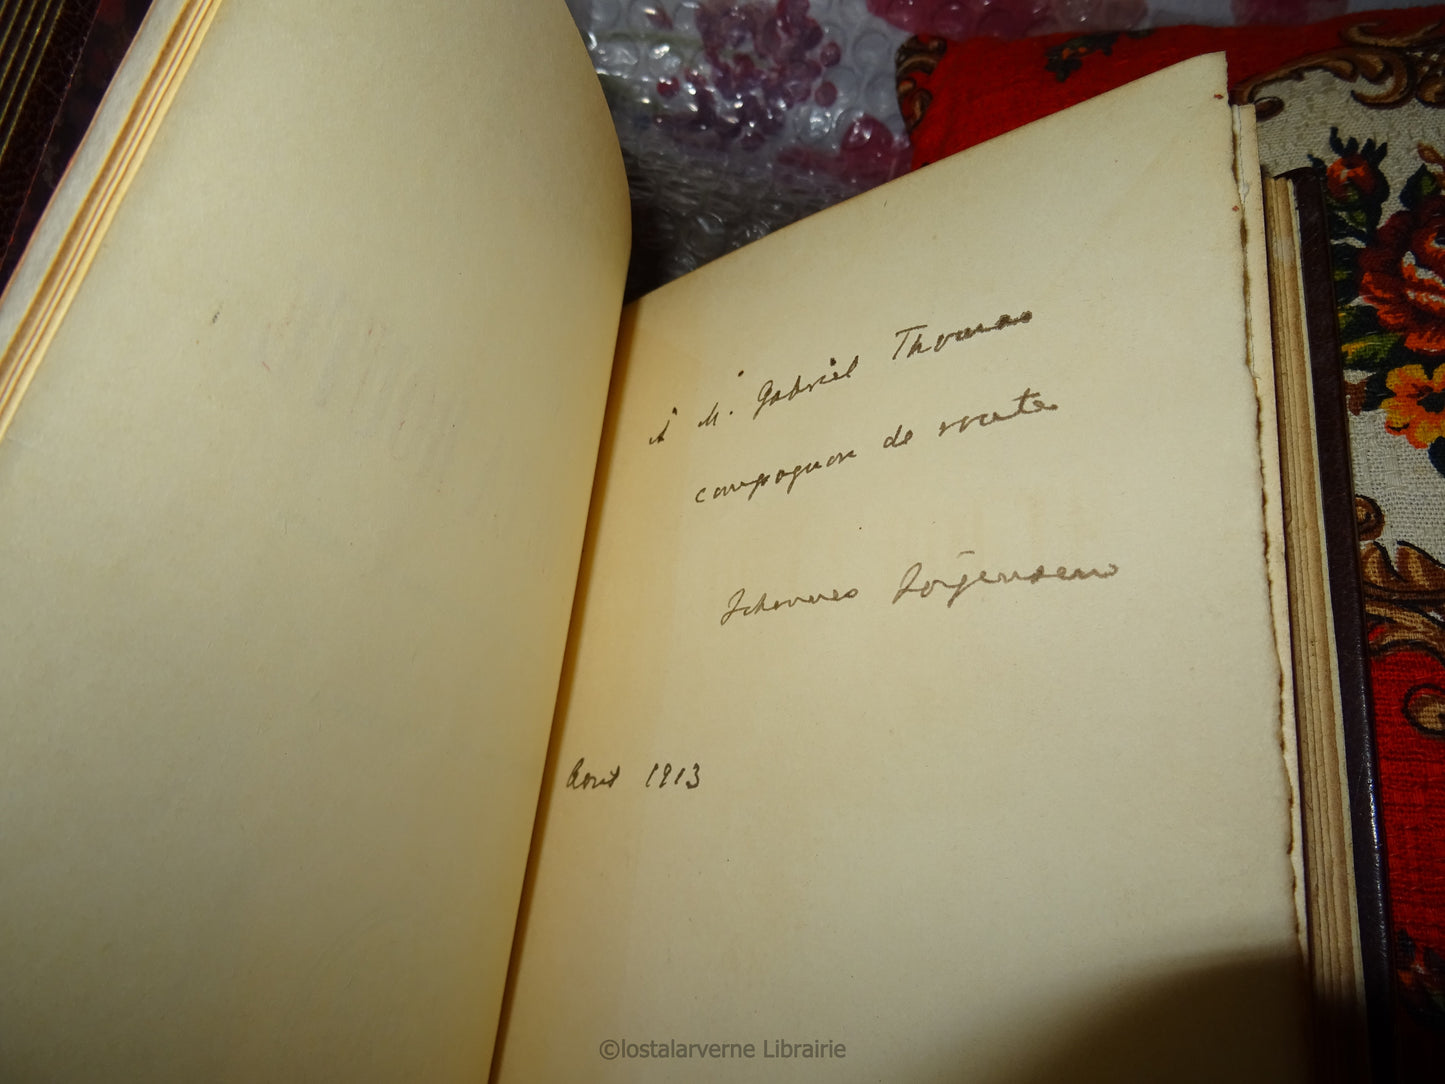 A M. Gabriel Thomas
compagnon de route
Johannes Jörgensen
Août 1913
©lostalarverne Librairie